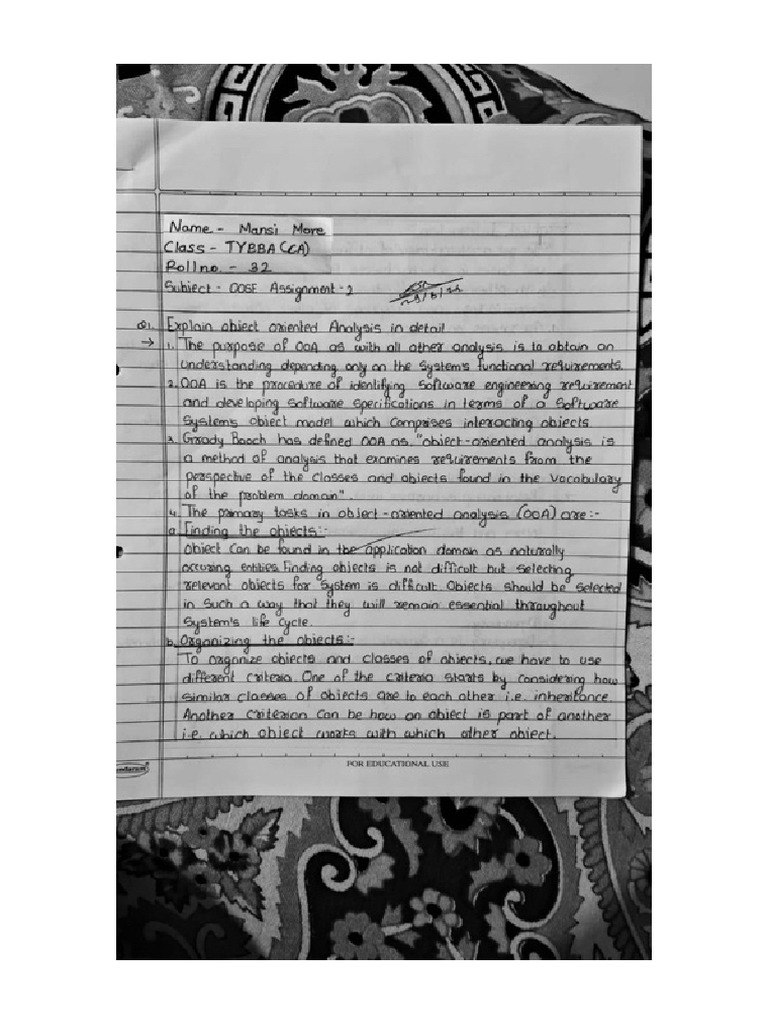 Name - Mansi More
Class - TYBBA (CA)
Roll no. - 32
Subject - OOSE Assignment - 2
Q1. Explain object oriented Analysis in detail
→ 1. The purpose of OOA as with all other analysis is to obtain an
understanding depending only on the system's functional requirements.
2. OOA is the procedure of identifying software engineering requirement
and developing software specifications in terms of a software
system's object model which comprises interacting objects.
3. Grady Booch has defined OOA as, "object-oriented analysis is
a method of analysis that examines requirements from the
perspective of the classes and objects found in the vocabulary
of the problem domain".
4. The primary tasks in object-oriented analysis (OOA) are:-
a. Finding the objects:-
Object can be found in the application domain as naturally
occuring entities. Finding objects is not difficult but selecting
relevant objects for system is difficult. Objects should be selected
in such a way that they will remain essential throughout
system's life cycle.
b. Organizing the objects:-
To organize objects and classes of objects, we have to use
different criteria. One of the criteria starts by considering how
similar classes of objects are to each other i.e. inheritance.
Another criterion can be how an object is part of another
i.e. which object works with which other object.
FOR EDUCATIONAL USE